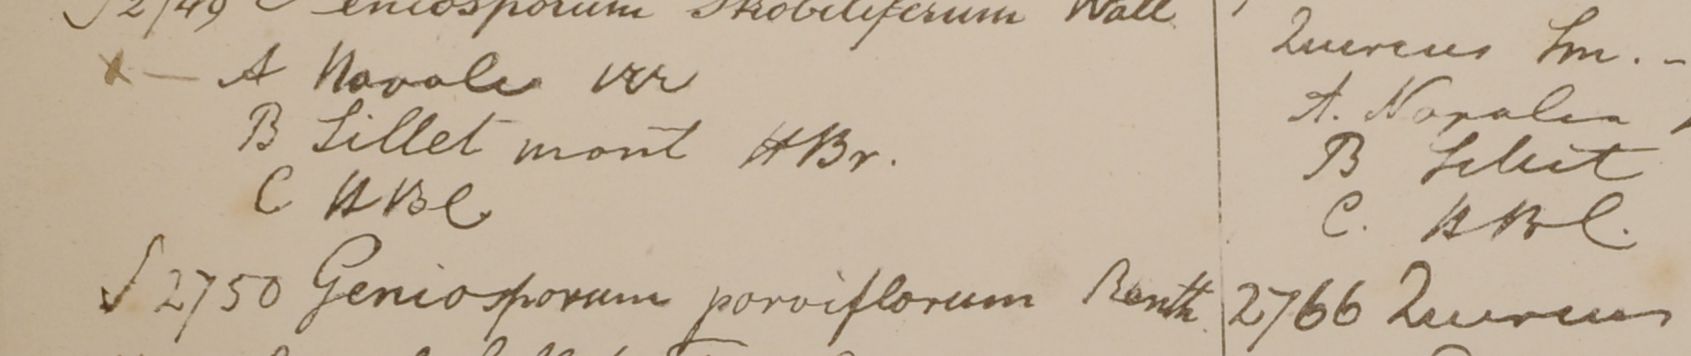 2749 Geniosporum strobiliferum Wall
× — A Navale
B Sillet mont HBr.
C HBC
2750 Geniosporum parviflorum Benth
Quercus Sm. -
A. Napalia
B Silhet
C. HBC.
2766 Quercus